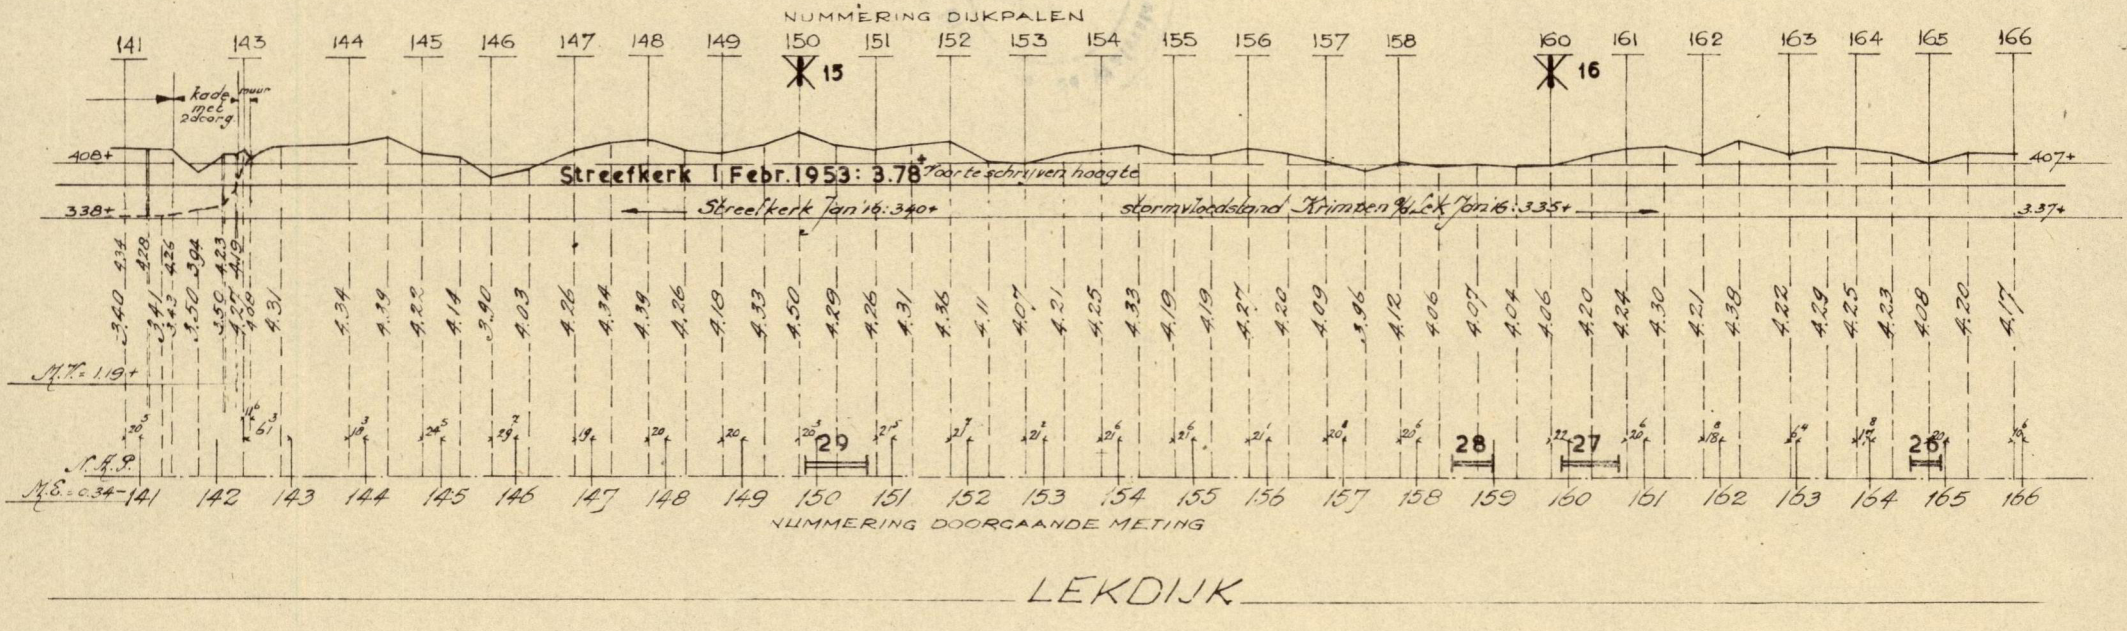 NUMMERING DIJKPALEN
141 143 144 145 146 147 148 149 150 151 152 153 154 155 156 157 158 160 161 162 163 164 165 166
15 16
kade muur
met
2doorg.
408+ 407+
Streefkerk 1 Febr. 1953: 3.78+ Voor te schrijven hoogte
338+ Streefkerk Jan '16: 340+ stormvloedstand Krimpen a/d Lek Jan '16: 335+ 3.37+
4.34 4.28 4.26 3.94 4.23 4.19
3.40 3.41 3.43 3.50 3.50 4.27 4.08 4.31 4.34 4.39 4.22 4.14 3.90 4.03 4.26 4.34 4.39 4.26 4.18 4.33 4.50 4.29 4.26 4.31 4.36 4.11 4.07 4.21 4.25 4.33 4.19 4.19 4.27 4.20 4.09 3.96 4.12 4.06 4.07 4.04 4.06 4.20 4.24 4.30 4.21 4.38 4.22 4.29 4.25 4.23 4.08 4.20 4.17
M.V. = 1.19+
20⁵ 11⁶ 61³ 18³ 24⁵ 29⁷ 19 20 20 20³ 21⁵ 21⁷ 21² 21⁶ 21⁶ 21¹ 20⁸ 20⁶ 22 20⁶ 18⁸ 6⁴ 17⁸ 20 10⁶
29 28 27 26
N.A.P.
M.E. = 0.34- 141 142 143 144 145 146 147 148 149 150 151 152 153 154 155 156 157 158 159 160 161 162 163 164 165 166
NUMMERING DOORGAANDE METING
LEKDIJK